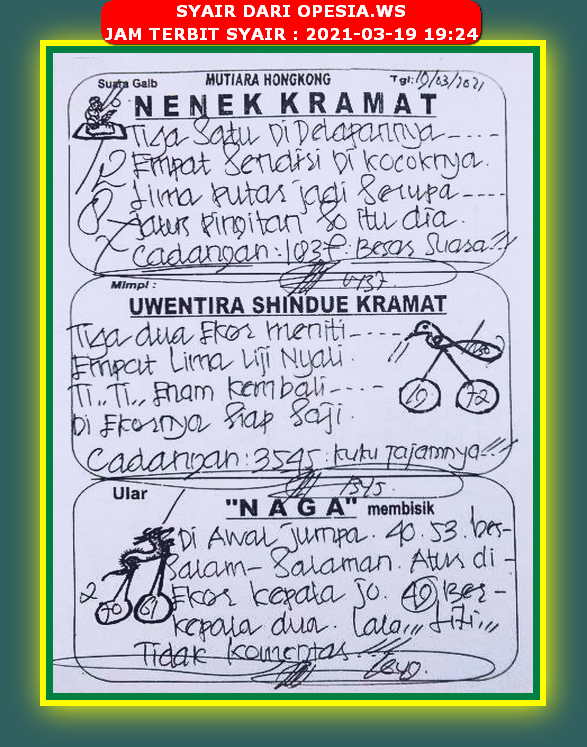 SYAIR DARI OPESIA.WS
JAM TERBIT SYAIR : 2021-03-19 19:24
Suara Gaib MUTIARA HONGKONG Tgl: 19/03/2021
NENEK KRAMAT
Tiga Satu Di Delapannya ----
Empat Sendisi Di kocoknya.
Lima putas jadi Serupa ----
Pingitan So itu dia.
Cadangan: 1037: Besar Suasa!!!
Mimpi :
UWENTIRA SHINDUE KRAMAT
Tiga dua Ekor meniti ----
Empat Lima Uji Nyali.
Ti.. Ti.. Enam kembali ----
Di Ekornya Siap Saji.
19 72
Cadangan: 3545: kuku Tajamnya!!!
1545.
Ular "NAGA" membisik
Di Awal jumpa. 40. 53. ber-
Salam-Salaman. Atur di-
Ekor kepala jo. 49 Ber-
kepala dua. Lala,,, Titi,,,
Tidak komentar
2 70 61